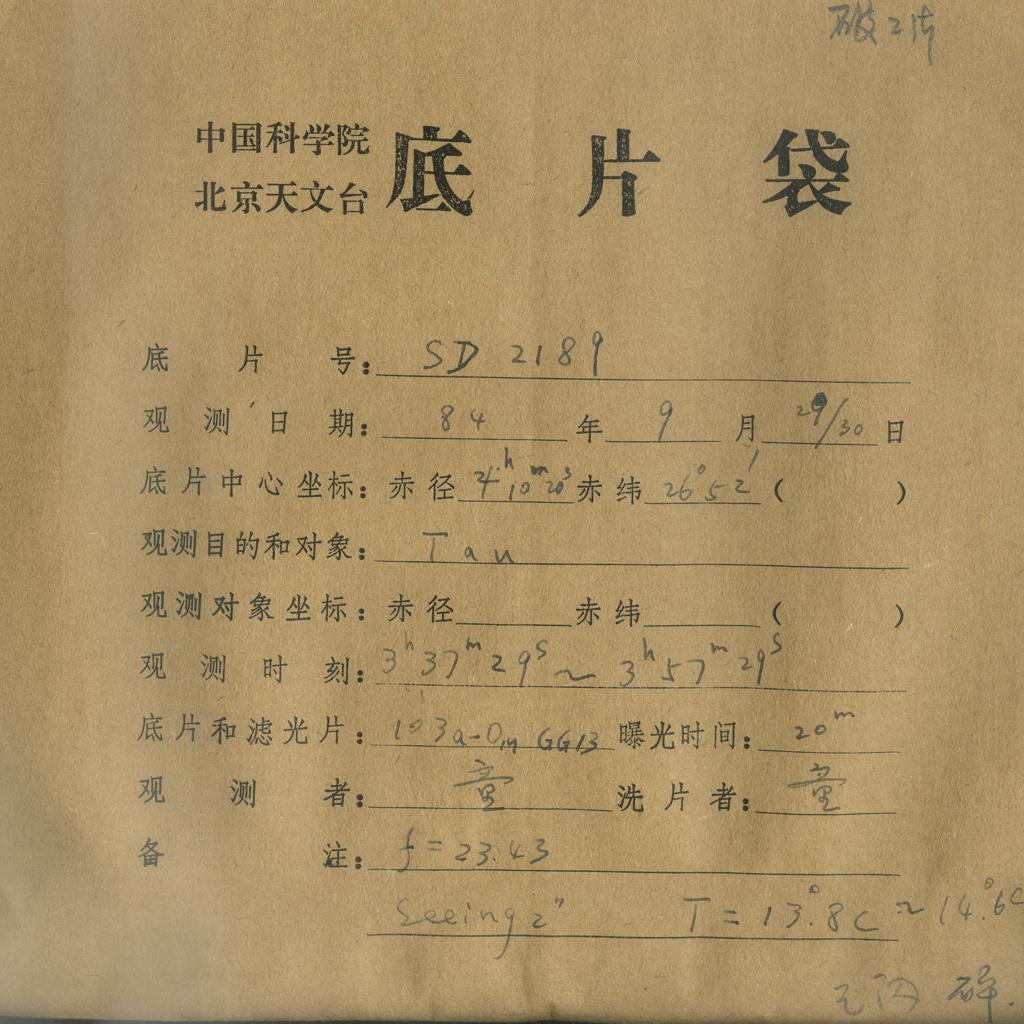 破2片
中国科学院
北京天文台
底片袋
底片号: SD 2189
观测日期: 84年9月29/30日
底片中心坐标: 赤径 4h10m20s 赤纬 26°52′ ( )
观测目的和对象: Tau
观测对象坐标: 赤径 赤纬 ( )
观测时刻: 3h37m29s ~ 3h57m29s
底片和滤光片: 103a-O,n GG13 曝光时间: 20m
观测者: 童 洗片者: 童
备注: f = 23.43
Seeing 2" T = 13°.8C ~ 14°.6C
碎.